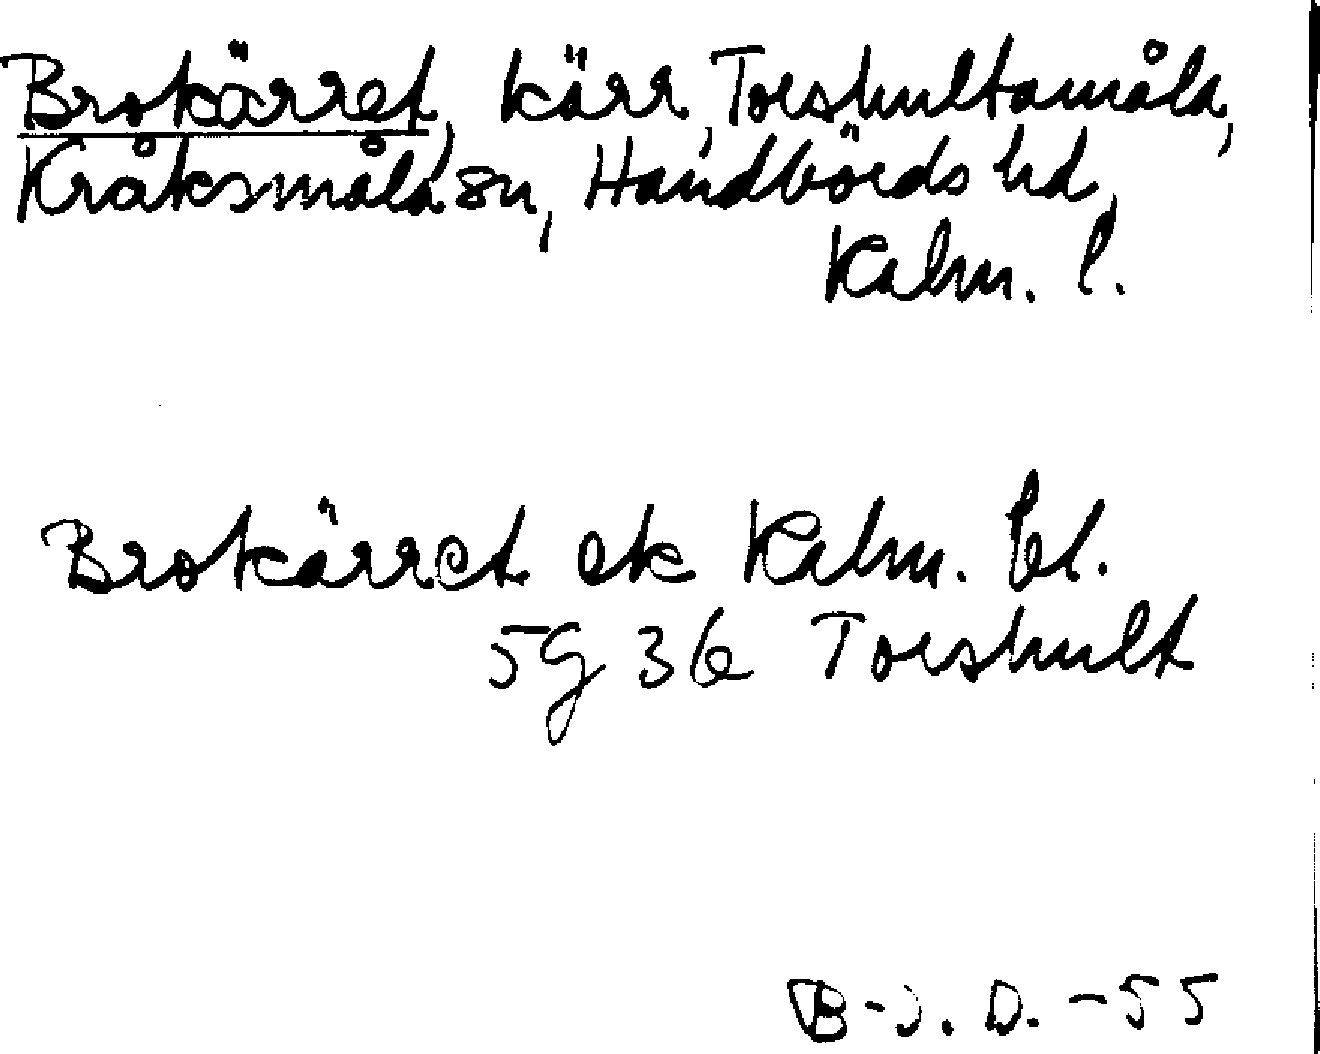 Brokärret, kärr, Toeshultamåla,
Kråksmåla sn, Handbörds hd,
Kalm. l.
Brokärret ek Kalm. bl.
5g 36 Toeshult
B-J. D. -55